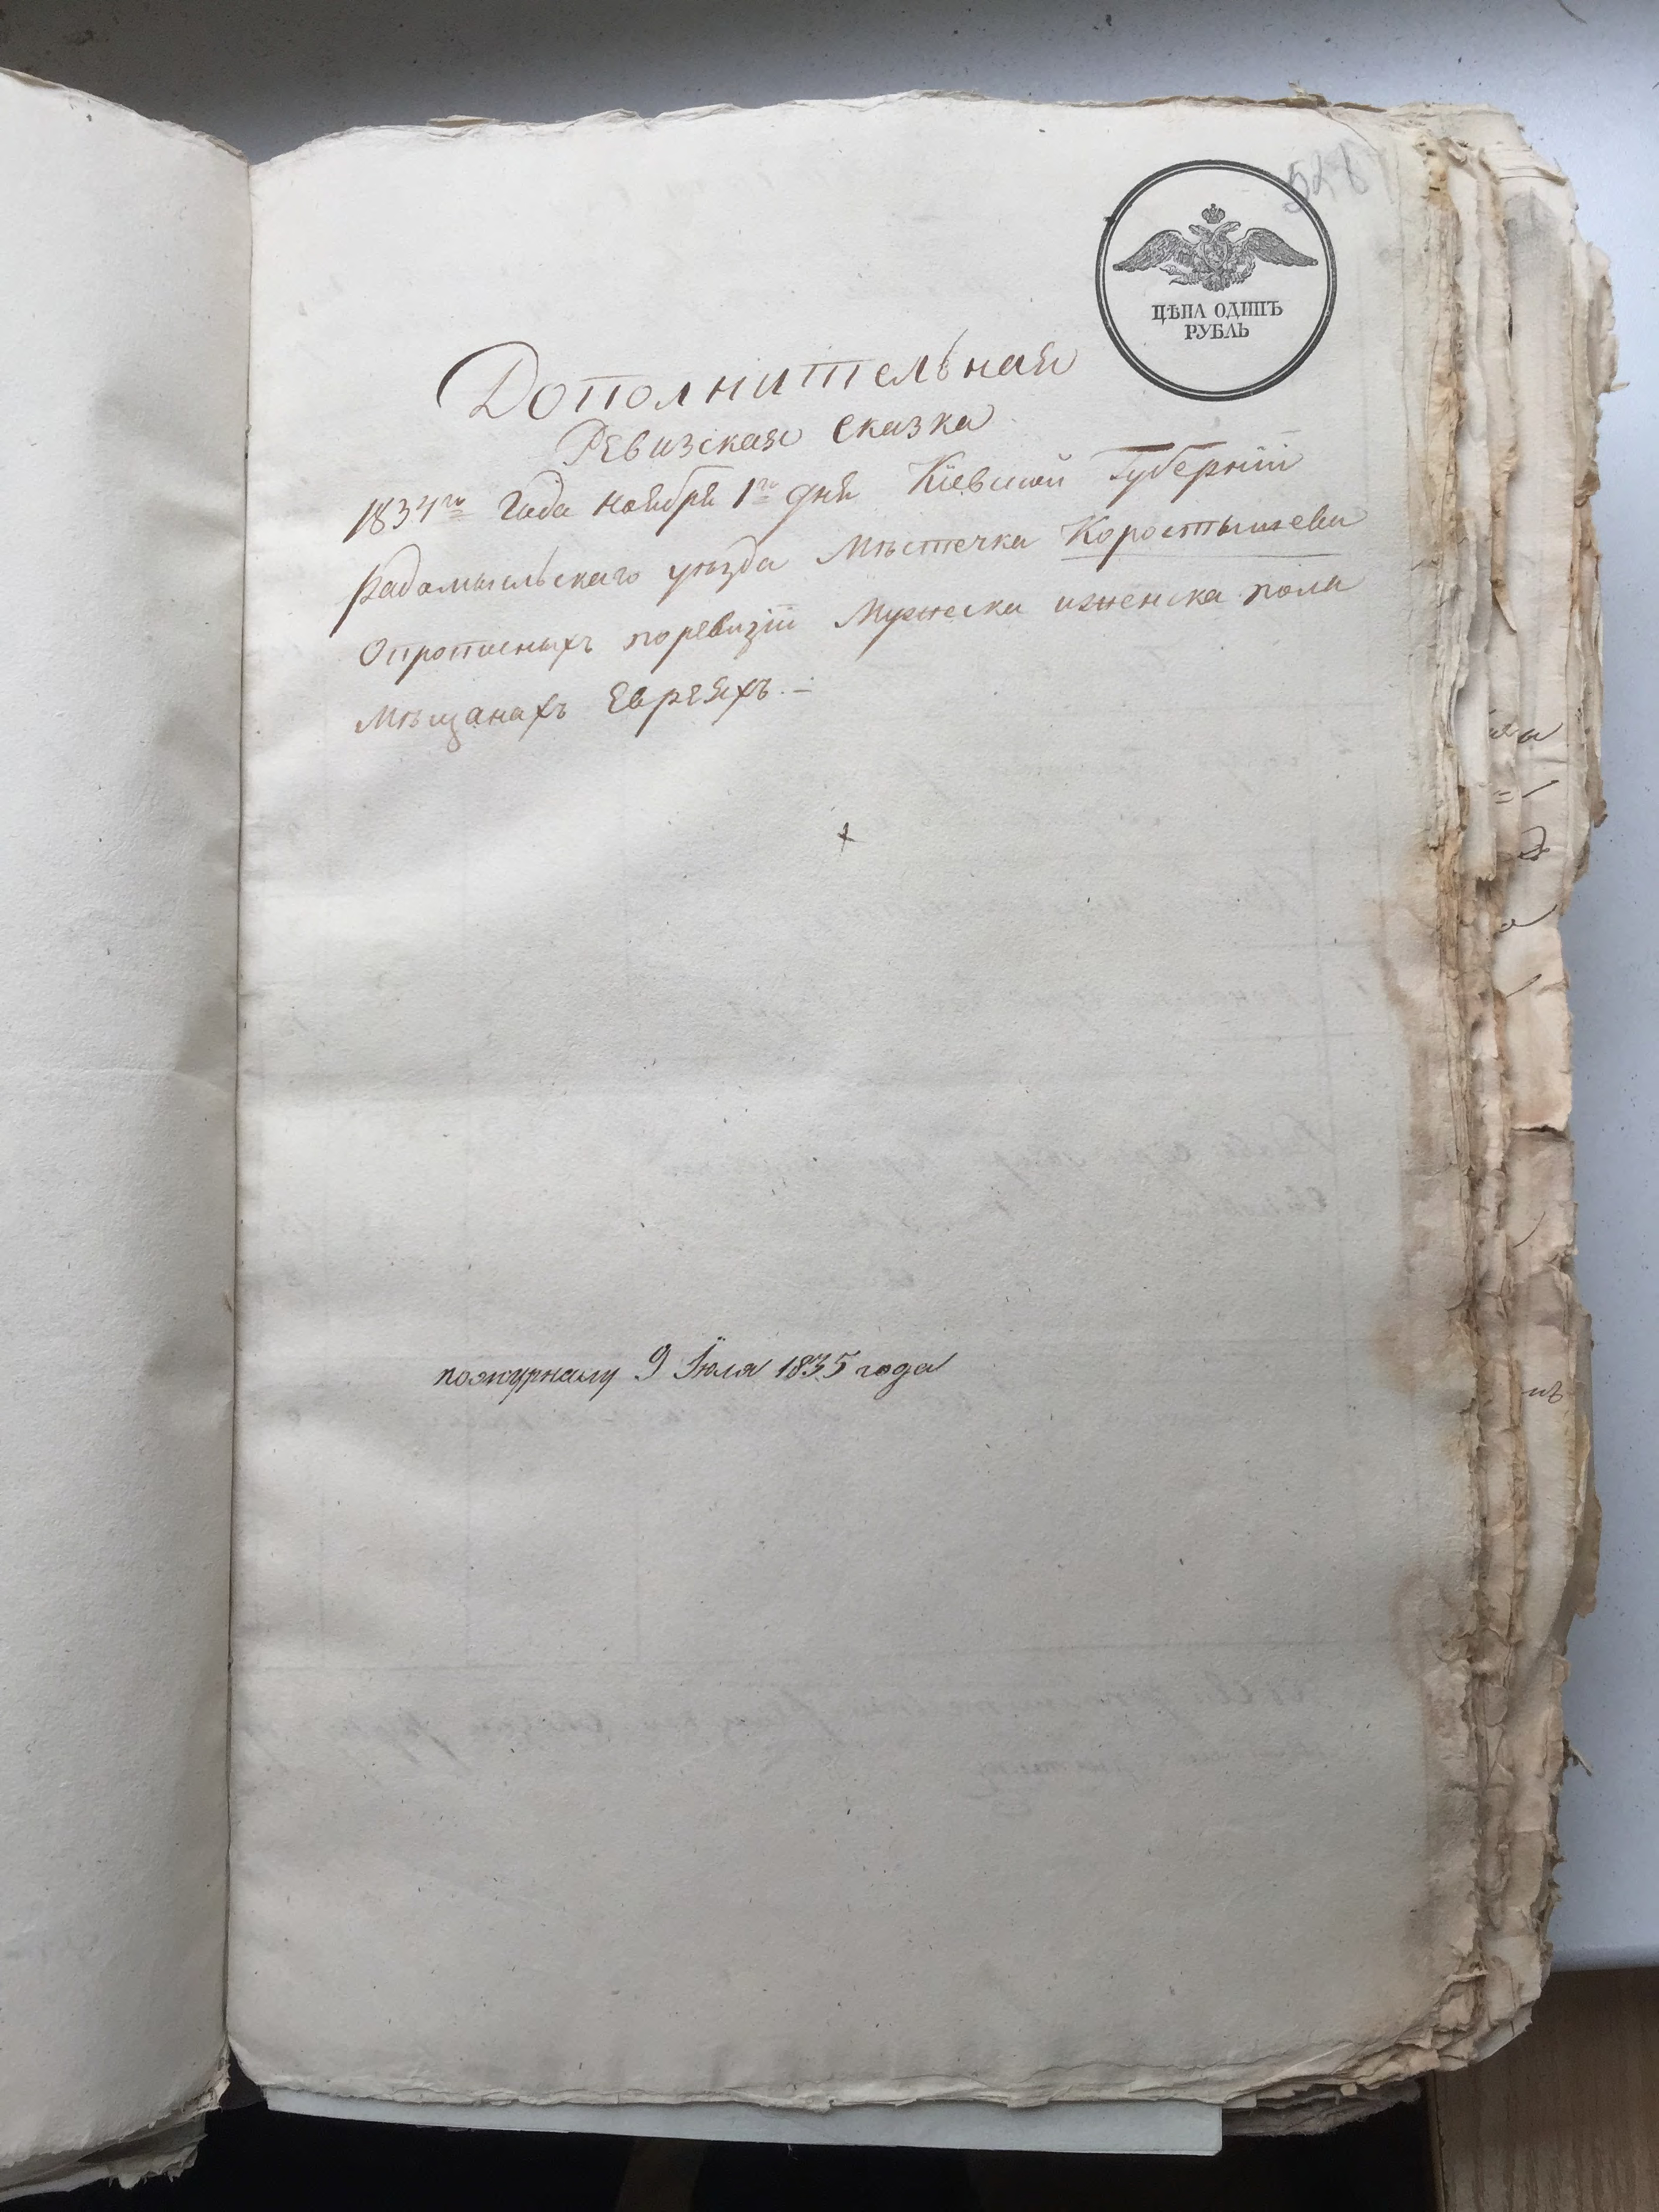 528
ЦѢНА ОДИНЪ
РУБЛЬ
Дополнительная
Ревизская сказка
1834го года ноября 1го дня Кіевской Губерніи
Радомысльскаго уѣзда Мѣстечка Коростышева
Опрописныхъ поревизіи Мужеска иженска пола
Мѣщанахъ Евреяхъ.
пожурналу 9 Іюля 1835 года